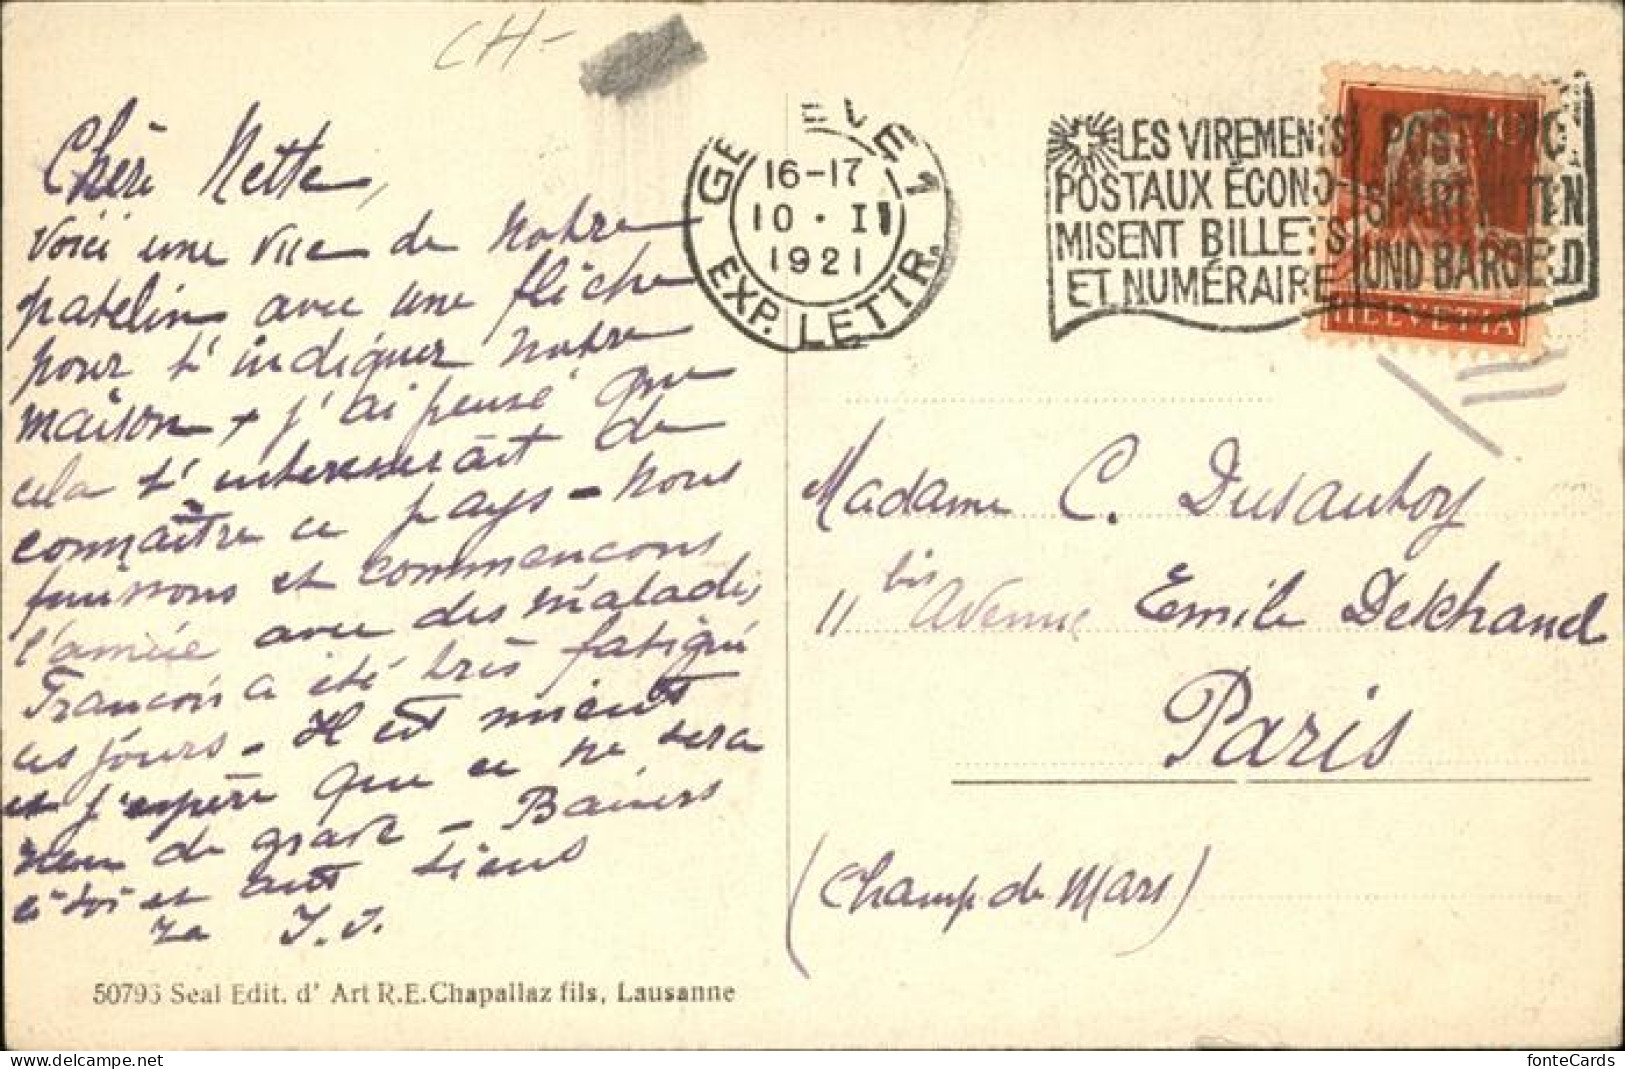 CH-
Chère Nette,
Voici une vue de notre
patelin avec une flèche
pour t'indiquer notre
maison + j'ai pensé que
cela t'intéresserait de
connaître ce pays - nous
finissons et commençons
l'année avec des malades,
François a été très fatigué
ces jours - Il est mieux
et j'espère que ce ne sera
rien de grave - Baisers
à toi et aux tiens
GENÈVE 1
16-17
10 · I
1921
EXP. LETTR.
LES VIREMENTS
POSTAUX ÉCONO-
MISENT BILLETS
ET NUMÉRAIRE
SPART NOTEN
UND BARGELD
HELVETIA
Madame C. Dusautoy
11 bis Avenue Emile Deschanel
Paris
(Champ de Mars)
50795 Seal Edit. d' Art R.E.Chapallaz fils, Lausanne
fonteCards